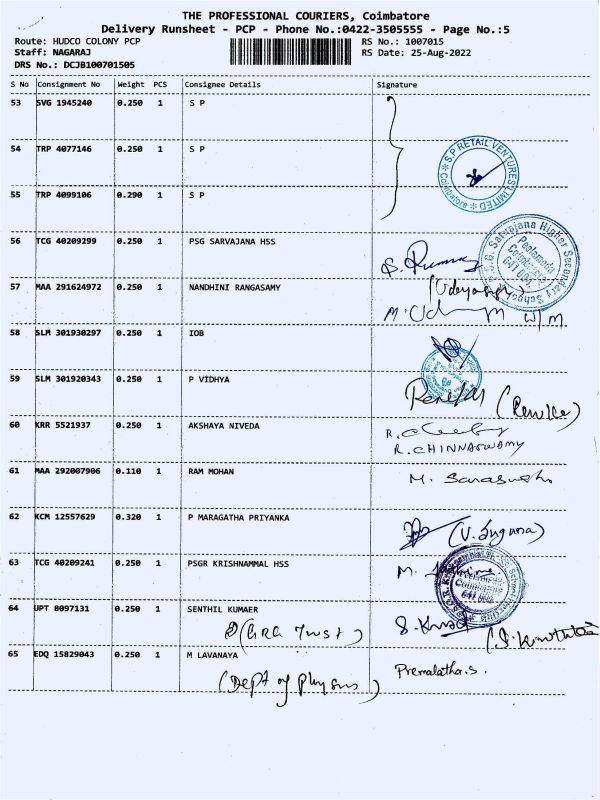 THE PROFESSIONAL COURIERS, Coimbatore
Delivery Runsheet - PCP - Phone No.:0422-3505555 - Page No.:5
Route: HUDCO COLONY PCP RS No.: 1007015
Staff: NAGARAJ RS Date: 25-Aug-2022
DRS No.: DCJB100701505
S No Consignment No Weight PCS Consignee Details Signature
53 SVG 1945240 0.250 1 S P
54 TRP 4077146 0.250 1 S P
S.P RETAIL VENTURES LIMITED * Coimbatore *
55 TRP 4099106 0.290 1 S P
56 TCG 40209299 0.250 1 PSG SARVAJANA HSS
P.S.G. Sarvajana Higher Secondary School
Peelamedu
Coimbatore
641 004
57 MAA 291624972 0.250 1 NANDHINI RANGASAMY
58 SLM 301930297 0.250 1 IOB
59 SLM 301920343 0.250 1 P VIDHYA
60 KRR 5521937 0.250 1 AKSHAYA NIVEDA
R. CHINNASWAMY
61 MAA 292007906 0.110 1 RAM MOHAN
62 KCM 12557629 0.320 1 P MARAGATHA PRIYANKA
(V. Suguna)
63 TCG 40209241 0.250 1 PSGR KRISHNAMMAL HSS
64 UPT 8097131 0.250 1 SENTHIL KUMAER
65 EDQ 15829043 0.250 1 M LAVANAYA Premalatha.S.
(Dept of Physics)